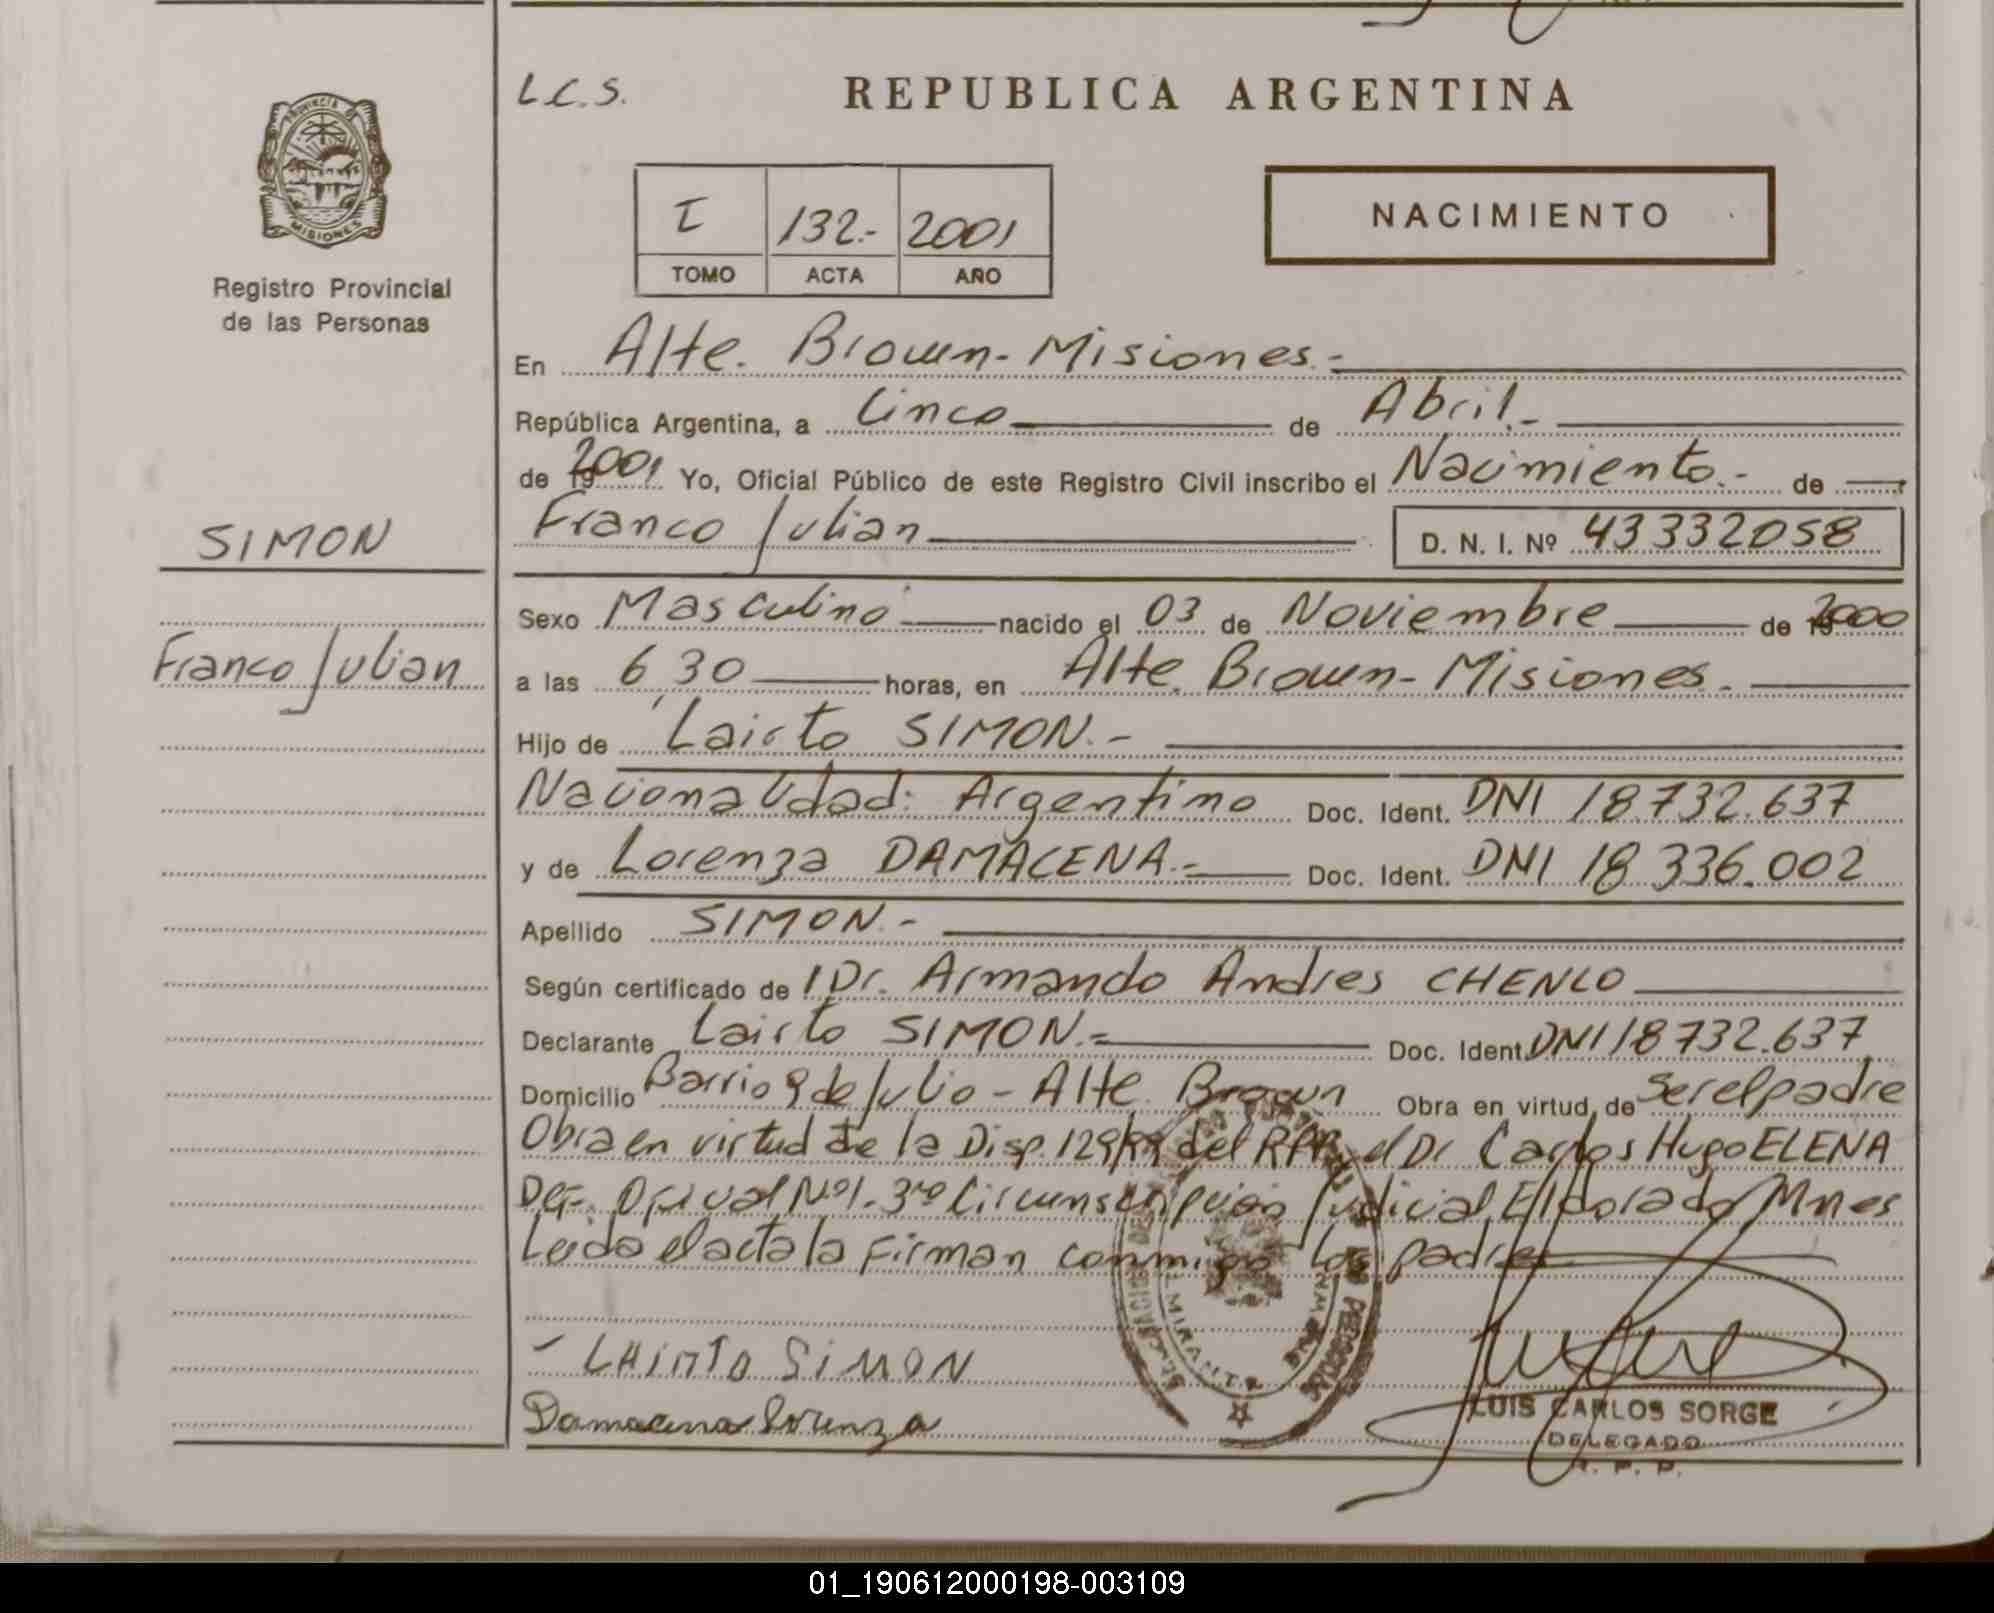 L.C.S.
REPUBLICA ARGENTINA
PROVINCIA DE
MISIONES
Registro Provincial
de las Personas
I 132.- 2001
TOMO ACTA AÑO
NACIMIENTO
En Alte. Brown - Misiones.-
República Argentina, a Cinco de Abril.-
de 19 2001 Yo, Oficial Público de este Registro Civil inscribo el Nacimiento.- de
Franco Julian D. N. I. Nº 43332058
SIMON
Franco Julian
Sexo Masculino nacido el 03 de Noviembre de 19 2000
a las 6 30 horas, en Alte. Brown - Misiones.
Hijo de Lairto SIMON.-
Nacionalidad: Argentino Doc. Ident. DNI 18.732.637
y de Lorenza DAMACENA.= Doc. Ident. DNI 18 336.002
Apellido SIMON.-
Según certificado de Dr. Armando Andres CHENLO
Declarante Lairto SIMON.= Doc. Ident. DNI 18 732.637
Domicilio Barrio 9 de Julio - Alte. Brown Obra en virtud de Ser el padre
Obra en virtud de la Disp. 129/99 del RPP y el Dr Carlos Hugo ELENA
Def. Oficial Nº1. 3ra Circunscripción Judicial Eldorado Mnes
Leida el acta la firman conmigo los padres
LAIRTO SIMON
Damacena Lorenza
LUIS CARLOS SORGE
DELEGADO
R. P. P.
01_190612000198-003109